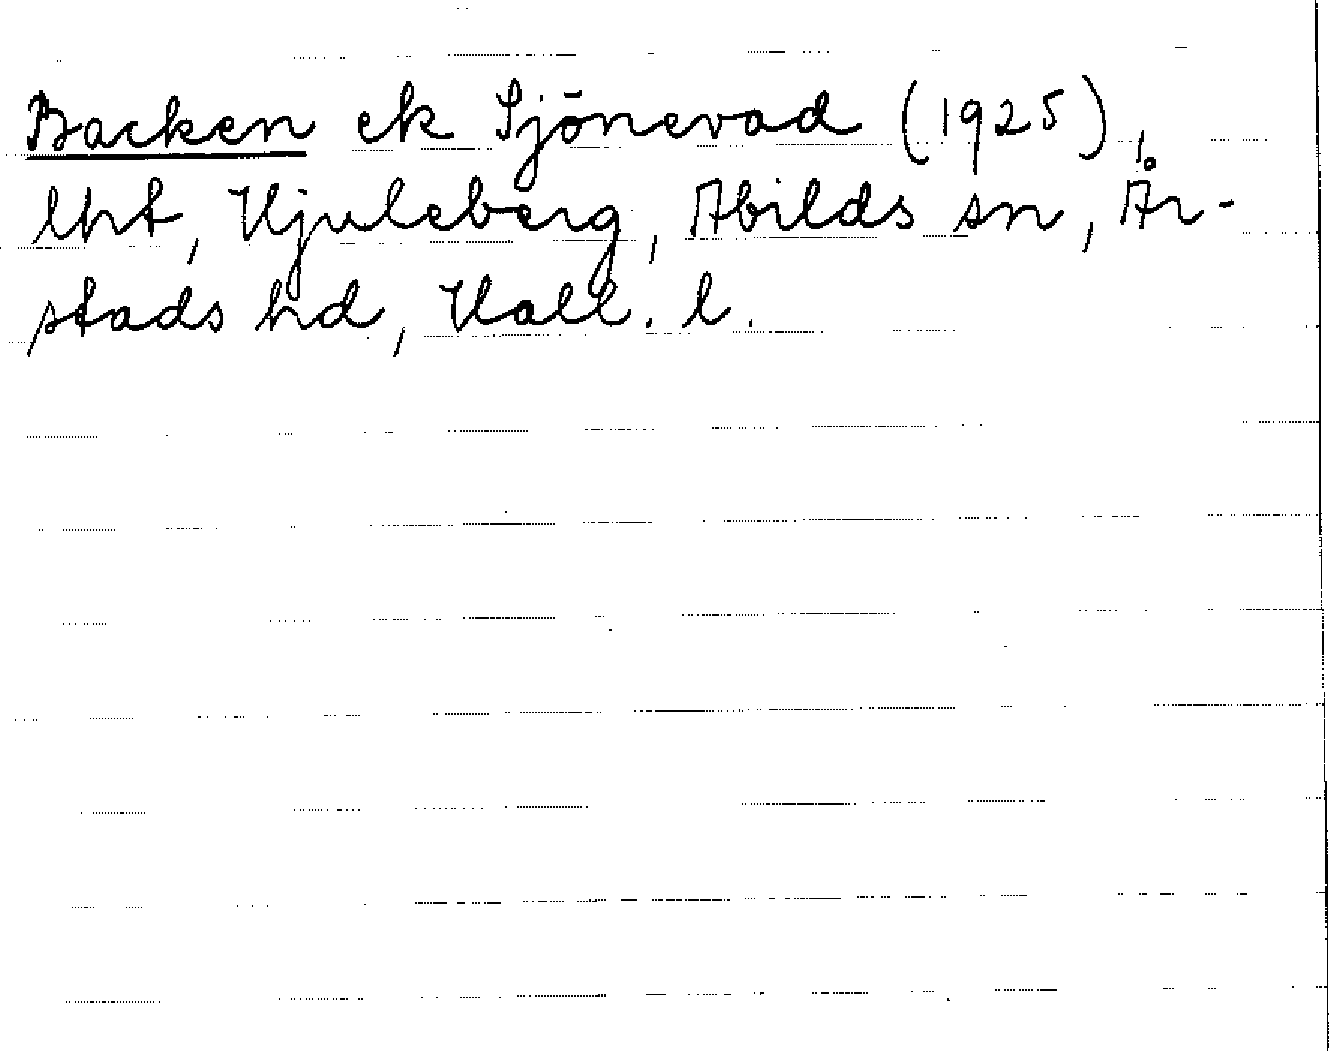 Backen ek Sjönevad (1925),
lht, Hjuleberg, Abilds sn, År-
stads hd, Hall. l.